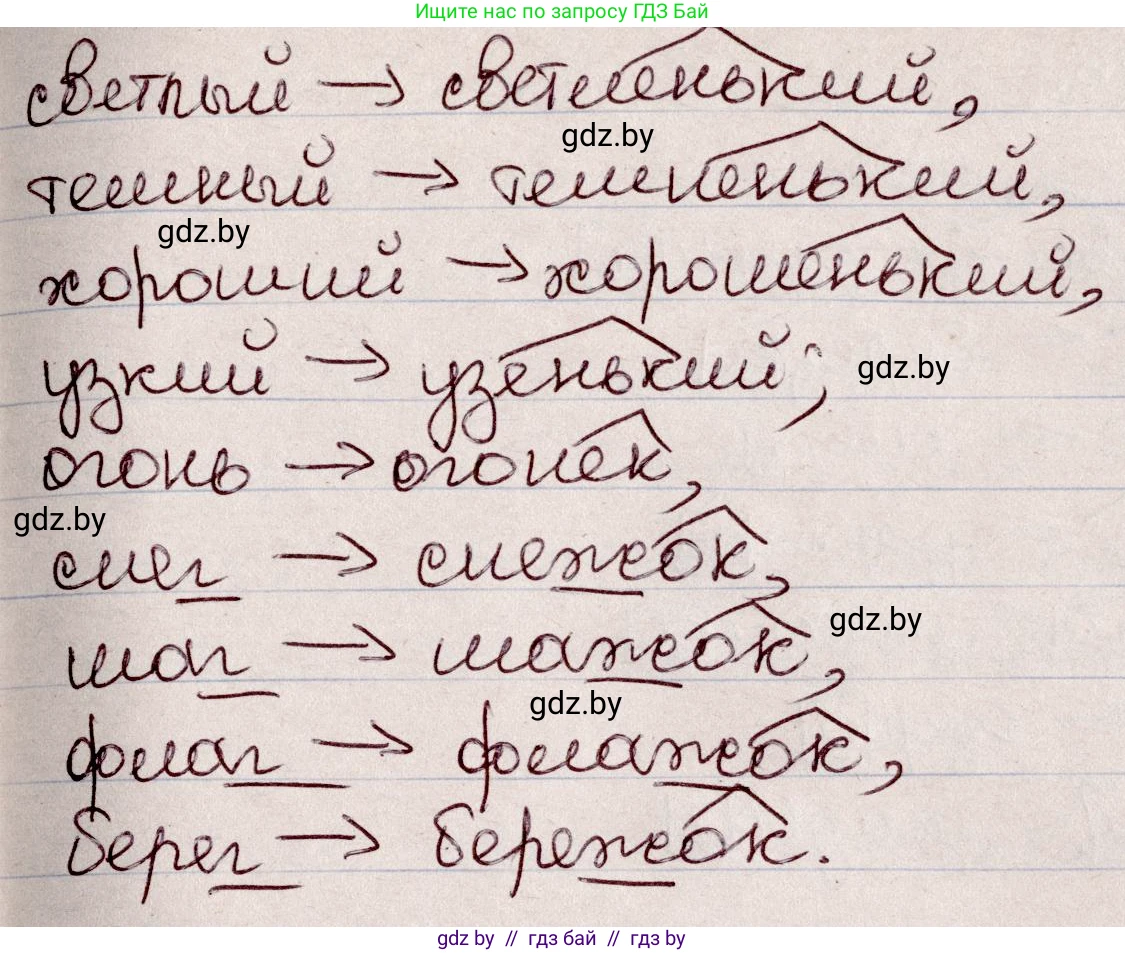 Ищите нас по запросу ГДЗ Бай
светлый → светленький,
gdz.by
темный → темненький,
gdz.by
хороший → хорошенький,
узкий → узенький;
gdz.by
огонь → огонек,
gdz.by
снег → снежок,
gdz.by
шаг → шажок,
gdz.by
флаг → флажок,
берег → бережок.
gdz by // гдз бай // гдз by